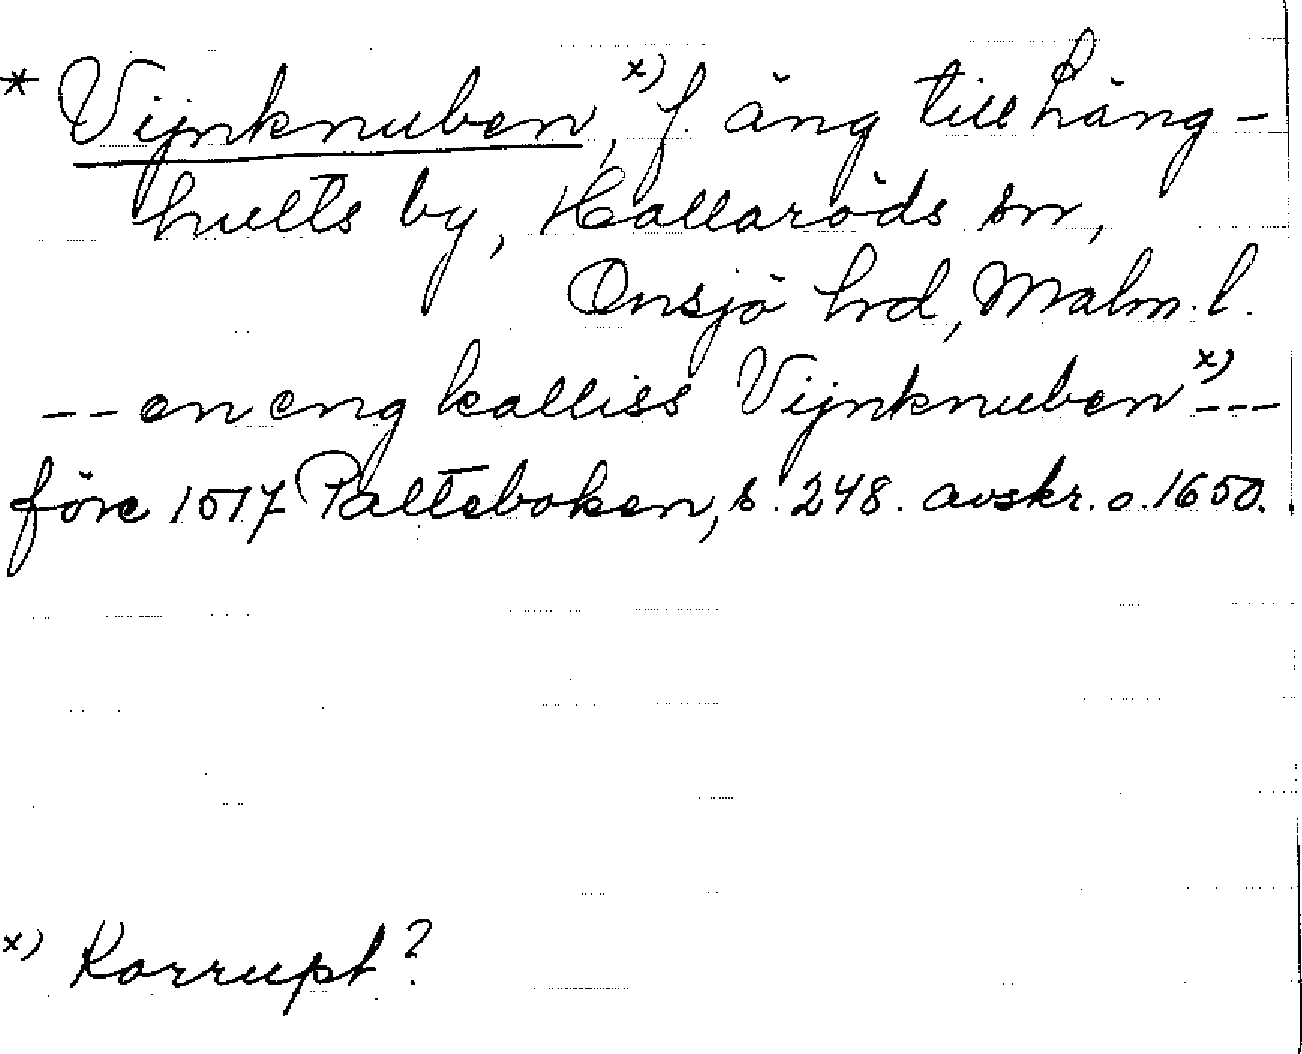 * Vijnknuben, x) f. äng till Häng-
hults by, Hallaröds sn,
Onsjö hrd, Malm. l.
-- en eng kalliss Vijnknuben x) ---
före 1517 Palteboken, s. 248. avskr. o. 1650.
x) Korrupt?